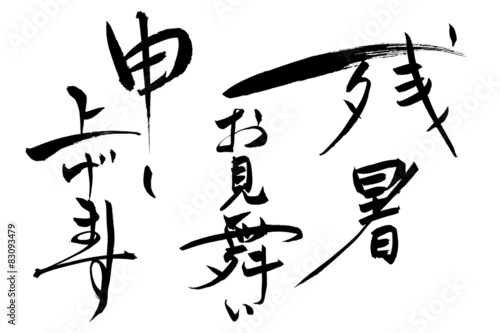 残暑
お見舞い
申し
上げます
Adobe Stock | #83093479